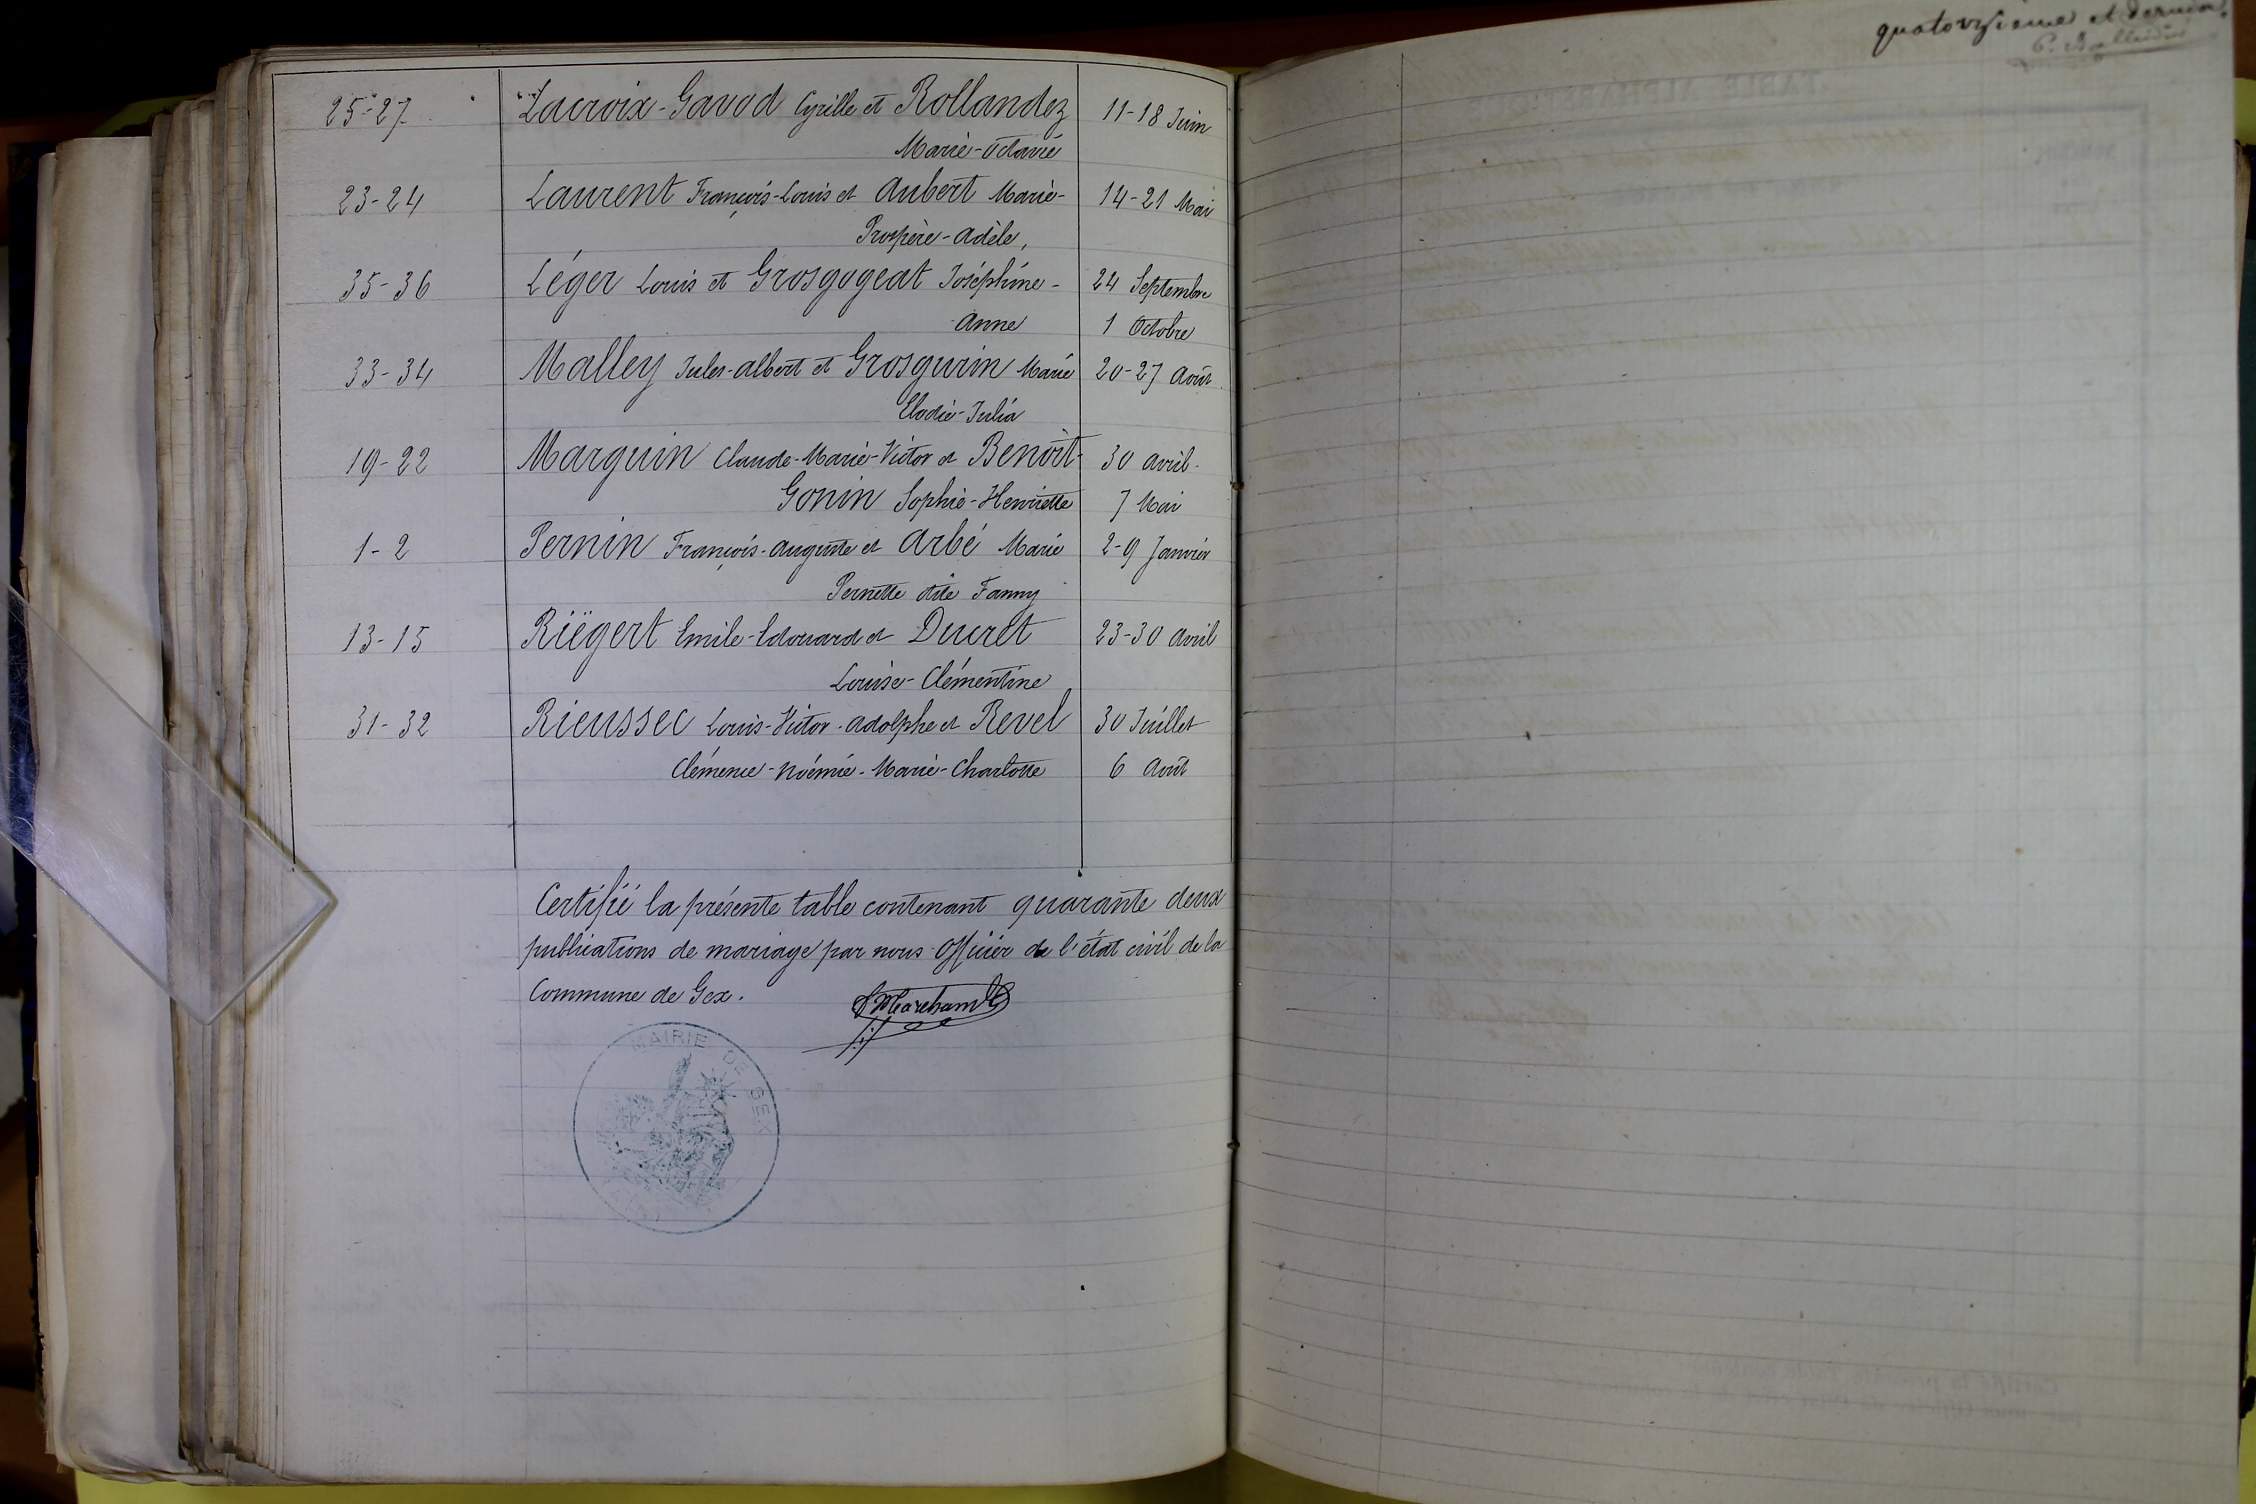 25-27 Lacroix-Gavod Cyrille et Rollandez 11-18 Juin
Marie-Octavie
23-24 Laurent François-Louis et Aubert Marie- 14-21 Mai
Prospère-Adèle,
35-36 Léger Louis et Grosgogeat Joséphine- 24 Septembre
Anne 1 Octobre
33-34 Malley Jules-Albert et Grosgurin Marie 20-27 Août
Elodie-Julia
19-22 Marguin Claude-Marie-Victor et Benoit- 30 Avril-
Gonin Sophie-Henriette 7 Mai
1-2 Pernin François-Auguste et Arbé Marie 2-9 Janvier
Pernette dite Fanny
13-15 Riëgert Emile-Edouard et Ducret 23-30 Avril
Louise-Clémentine
31-32 Rieussec Louis-Victor-Adolphe et Revel 30 Juillet
Clémence-Noémie-Marie-Charlotte 6 Août
Certifié la présente table contenant quarante deux
publications de mariage par nous Officier de l'état civil de la
Commune de Gex.
Marchand
MAIRIE DE GEX
quatorzième et dernier.